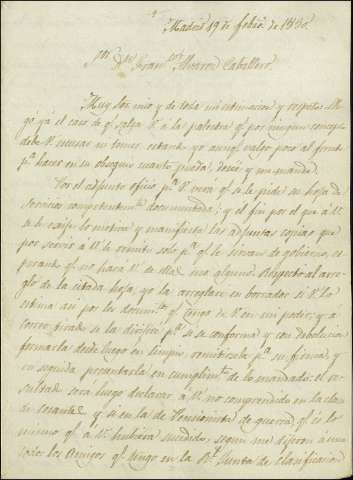 Madrid 19 de febro. de 1836.
Sor. Dn. Franco. Alvarez Caballero.
Muy Sor. mio y de toda mi estimacion y respeto: Lle-
gó ya el caso de qe. salga V. á la palestra qe. por ningun concep-
to debe V. recusar ni temer, estando yo aunqe. valgo poco al frente
pa. hacer en su obsequio cuanto pueda, desee y me mande.
Por el adjunto oficio pa. V. verá qe. se le pide su hoja de
Servicios competentemte. documentada; y el fin por el que á V.
se le exije lo motiva y manifiesta las adjuntas copias que
por servir á V. le remito solo pa. qe. le sirvan de gobierno, es-
perando qe. no hará V. de ellas uso alguno. Respecto al arre-
glo de la citada hoja, yo la arreglaré en borrador si V. lo
estima asi por los documtos. qe. tengo de V. en mi poder; y á
correo tirado se la dirijiré pa. si se conforma y con
formarla desde luego en limpio, remitirsela pa. su firma, y
en seguida presentarla en cumplimto. de lo mandado. El re-
sultado será luego declarar á V. no comprendido en la clase
de cesante y si en la de Pensionista de guerra qe. es lo
mismo qe. á V. hubiera sucedido, segun me dijeron á una
todos los Amigos qe. tengo en la Rl. Junta de Clasificacion